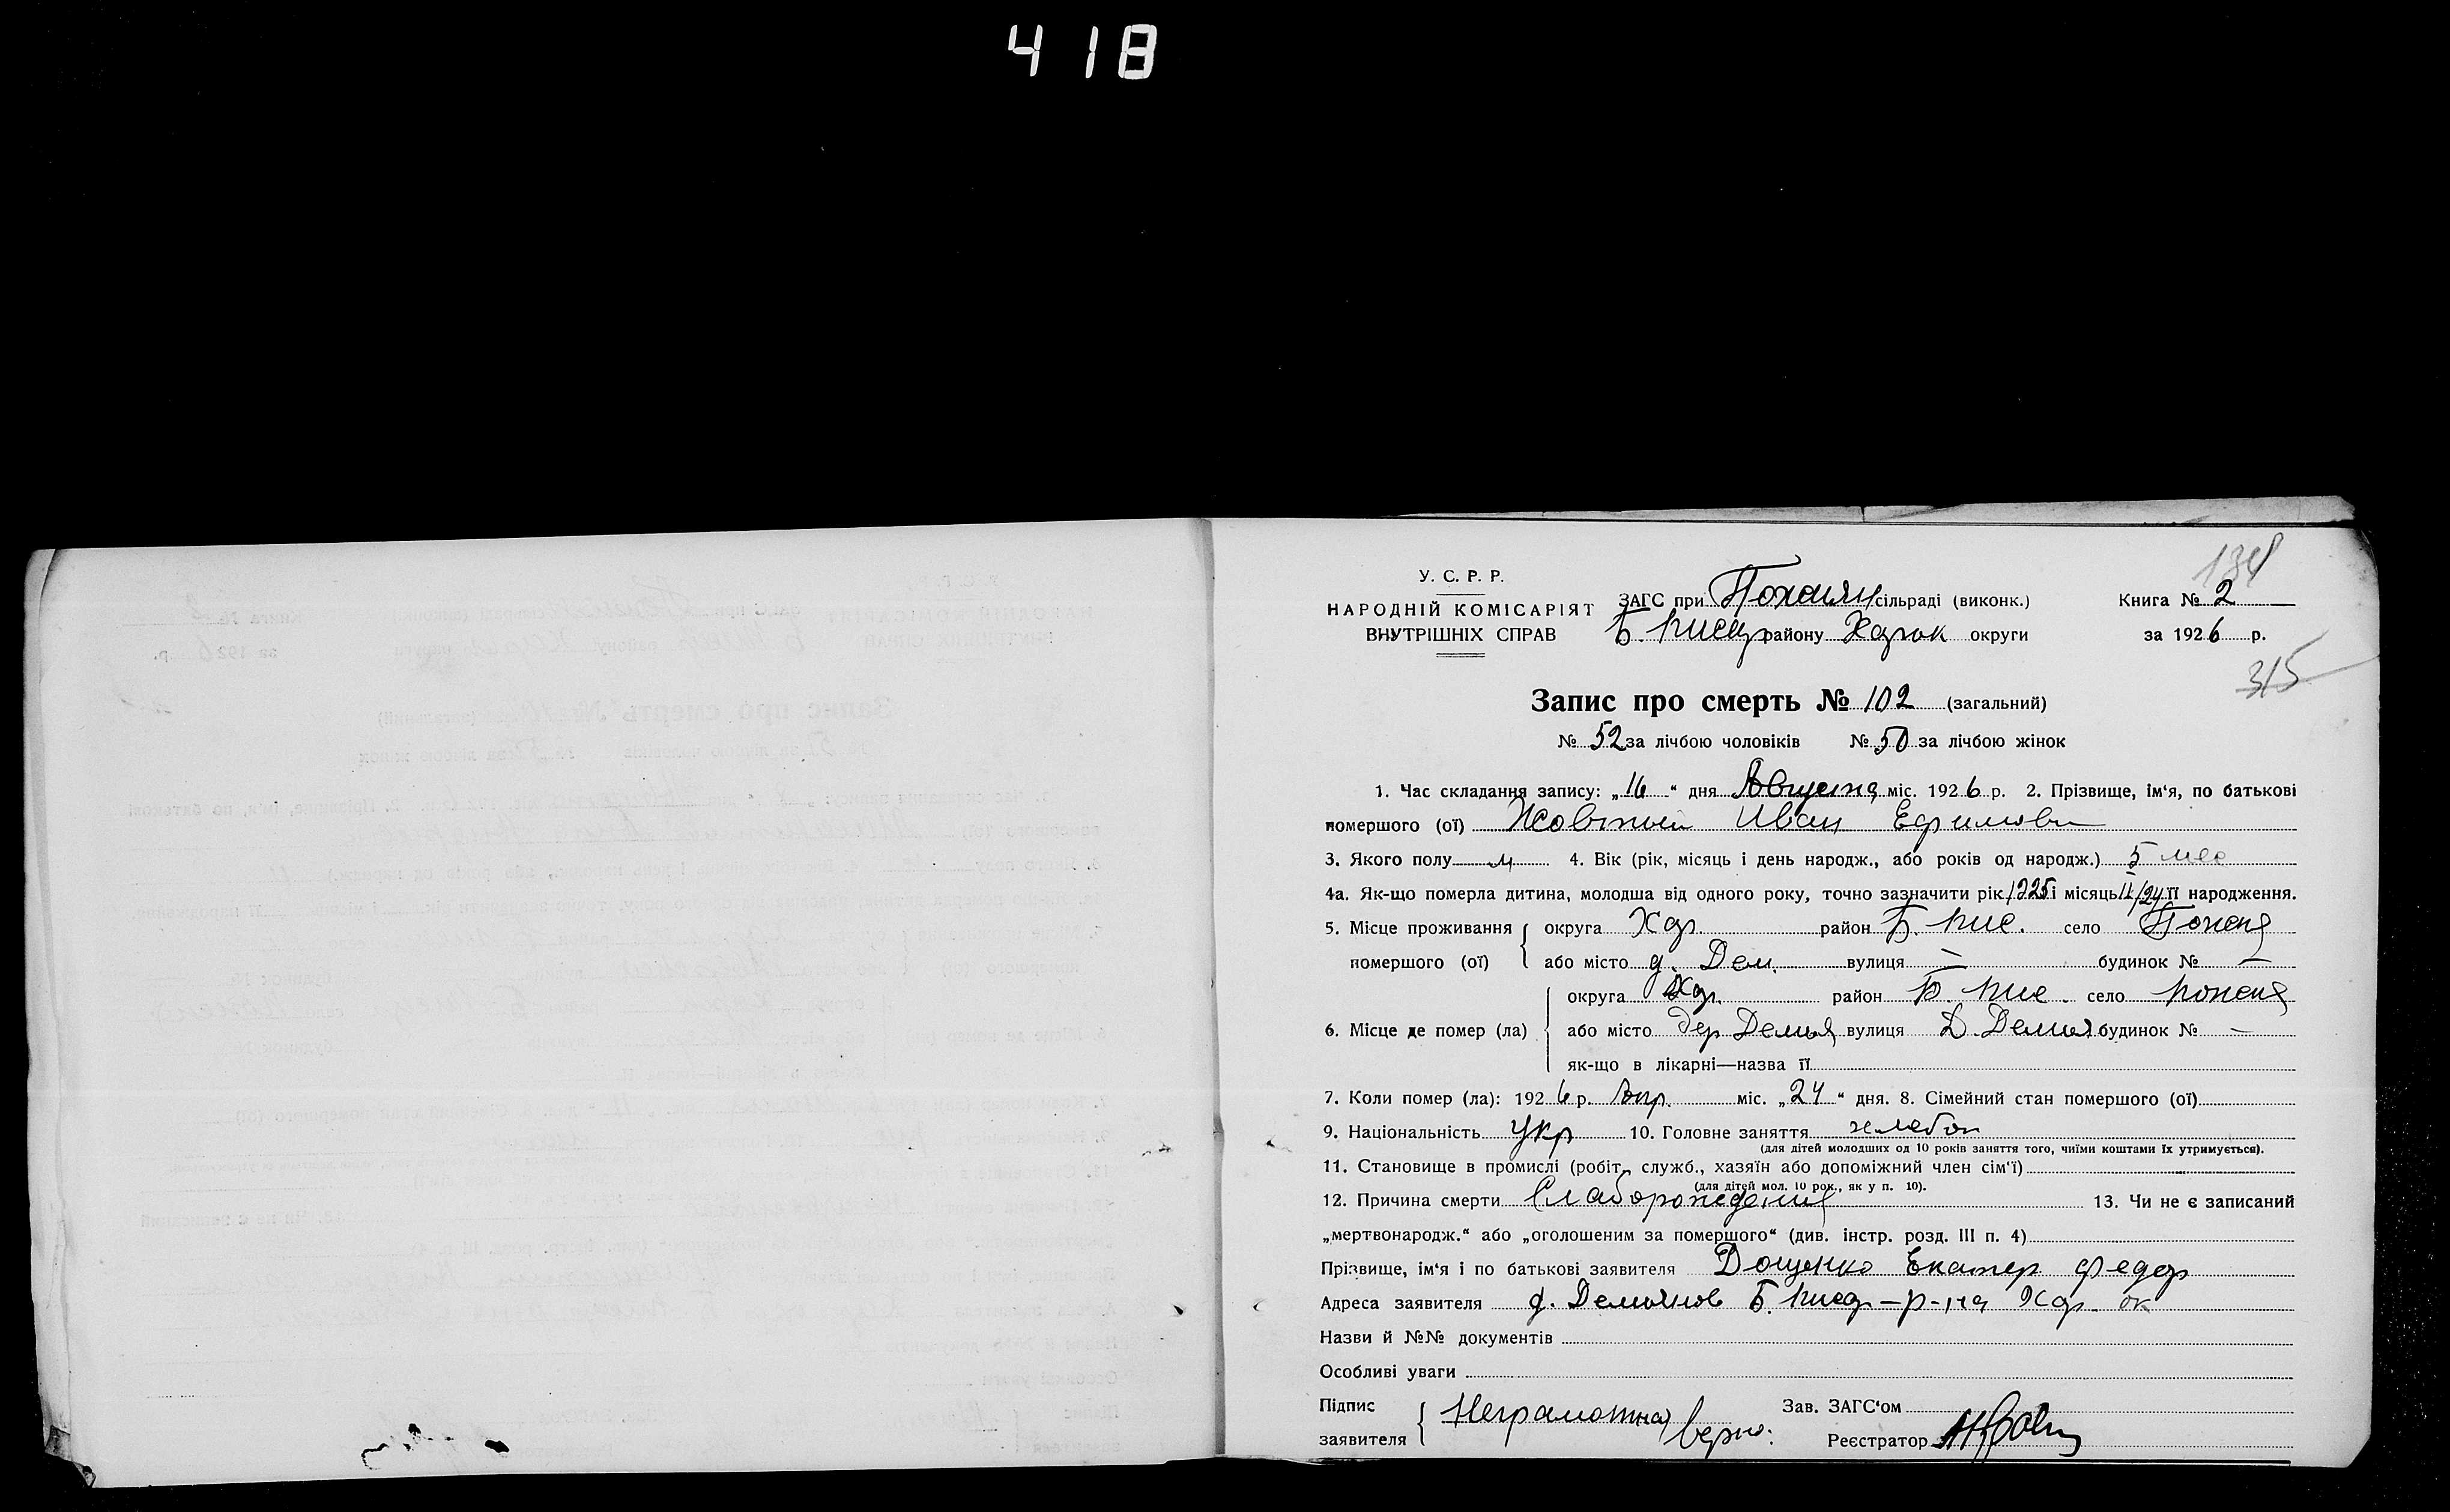 418
134
У. С. Р. Р.
НАРОДНІЙ КОМІСАРІЯТ
ВНУТРІШНІХ СПРАВ
ЗАГС при сільраді (виконк.)
Б. Писар району Харьк округи
Книга № 2
за 1926 р.
315
Запис про смерть № 102 (загальний)
№ 52 за лічбою чоловіків № 50 за лічбою жінок
1. Час складання запису: „16“ дня Августа міс. 1926 р. 2. Прізвище, ім'я, по батькові
помершого (ої) Жовтый Иван Ефимови
3. Якого полу м 4. Вік (рік, місяць і день народж., або років од народж.) 5 мес
4а. Як-що померла дитина, молодша від одного року, точно зазначити рік 1925 і місяць її народження.
5. Місце проживання
помершого (ої)
округа Хар. район Б. Пис. село
або місто д. Дем. вулиця — будинок № —
6. Місце де помер (ла)
округа Хар. район Б. Пис. село
або місто дер вулиця Д. будинок № —
як-що в лікарні—назва її
7. Коли помер (ла): 1926 р. Апр. міс. „24“ дня. 8. Сімейний стан помершого (ої)
9. Національність Укр 10. Головне заняття хлебоп
(для дітей молодших од 10 років заняття того, чиїми коштами їх утримується).
11. Становище в промислі (робіт., служб., хазяїн або допоміжний член сім'ї)
(для дітей мол. 10 рок., як у п. 10).
12. Причина смерти Слаборождения 13. Чи не є записаний
„мертвонародж.“ або „оголошеним за помершого“ (див. інстр. розд. III п. 4)
Прізвище, ім'я і по батькові заявителя Доценко Екатер Федор
Адреса заявителя д. Б. Писар-р-на Хар. ок
Назви й №№ документів
Особливі уваги
Підпис
заявителя
Неграмотная
Верно:
Зав. ЗАГС'ом
Реєстратор